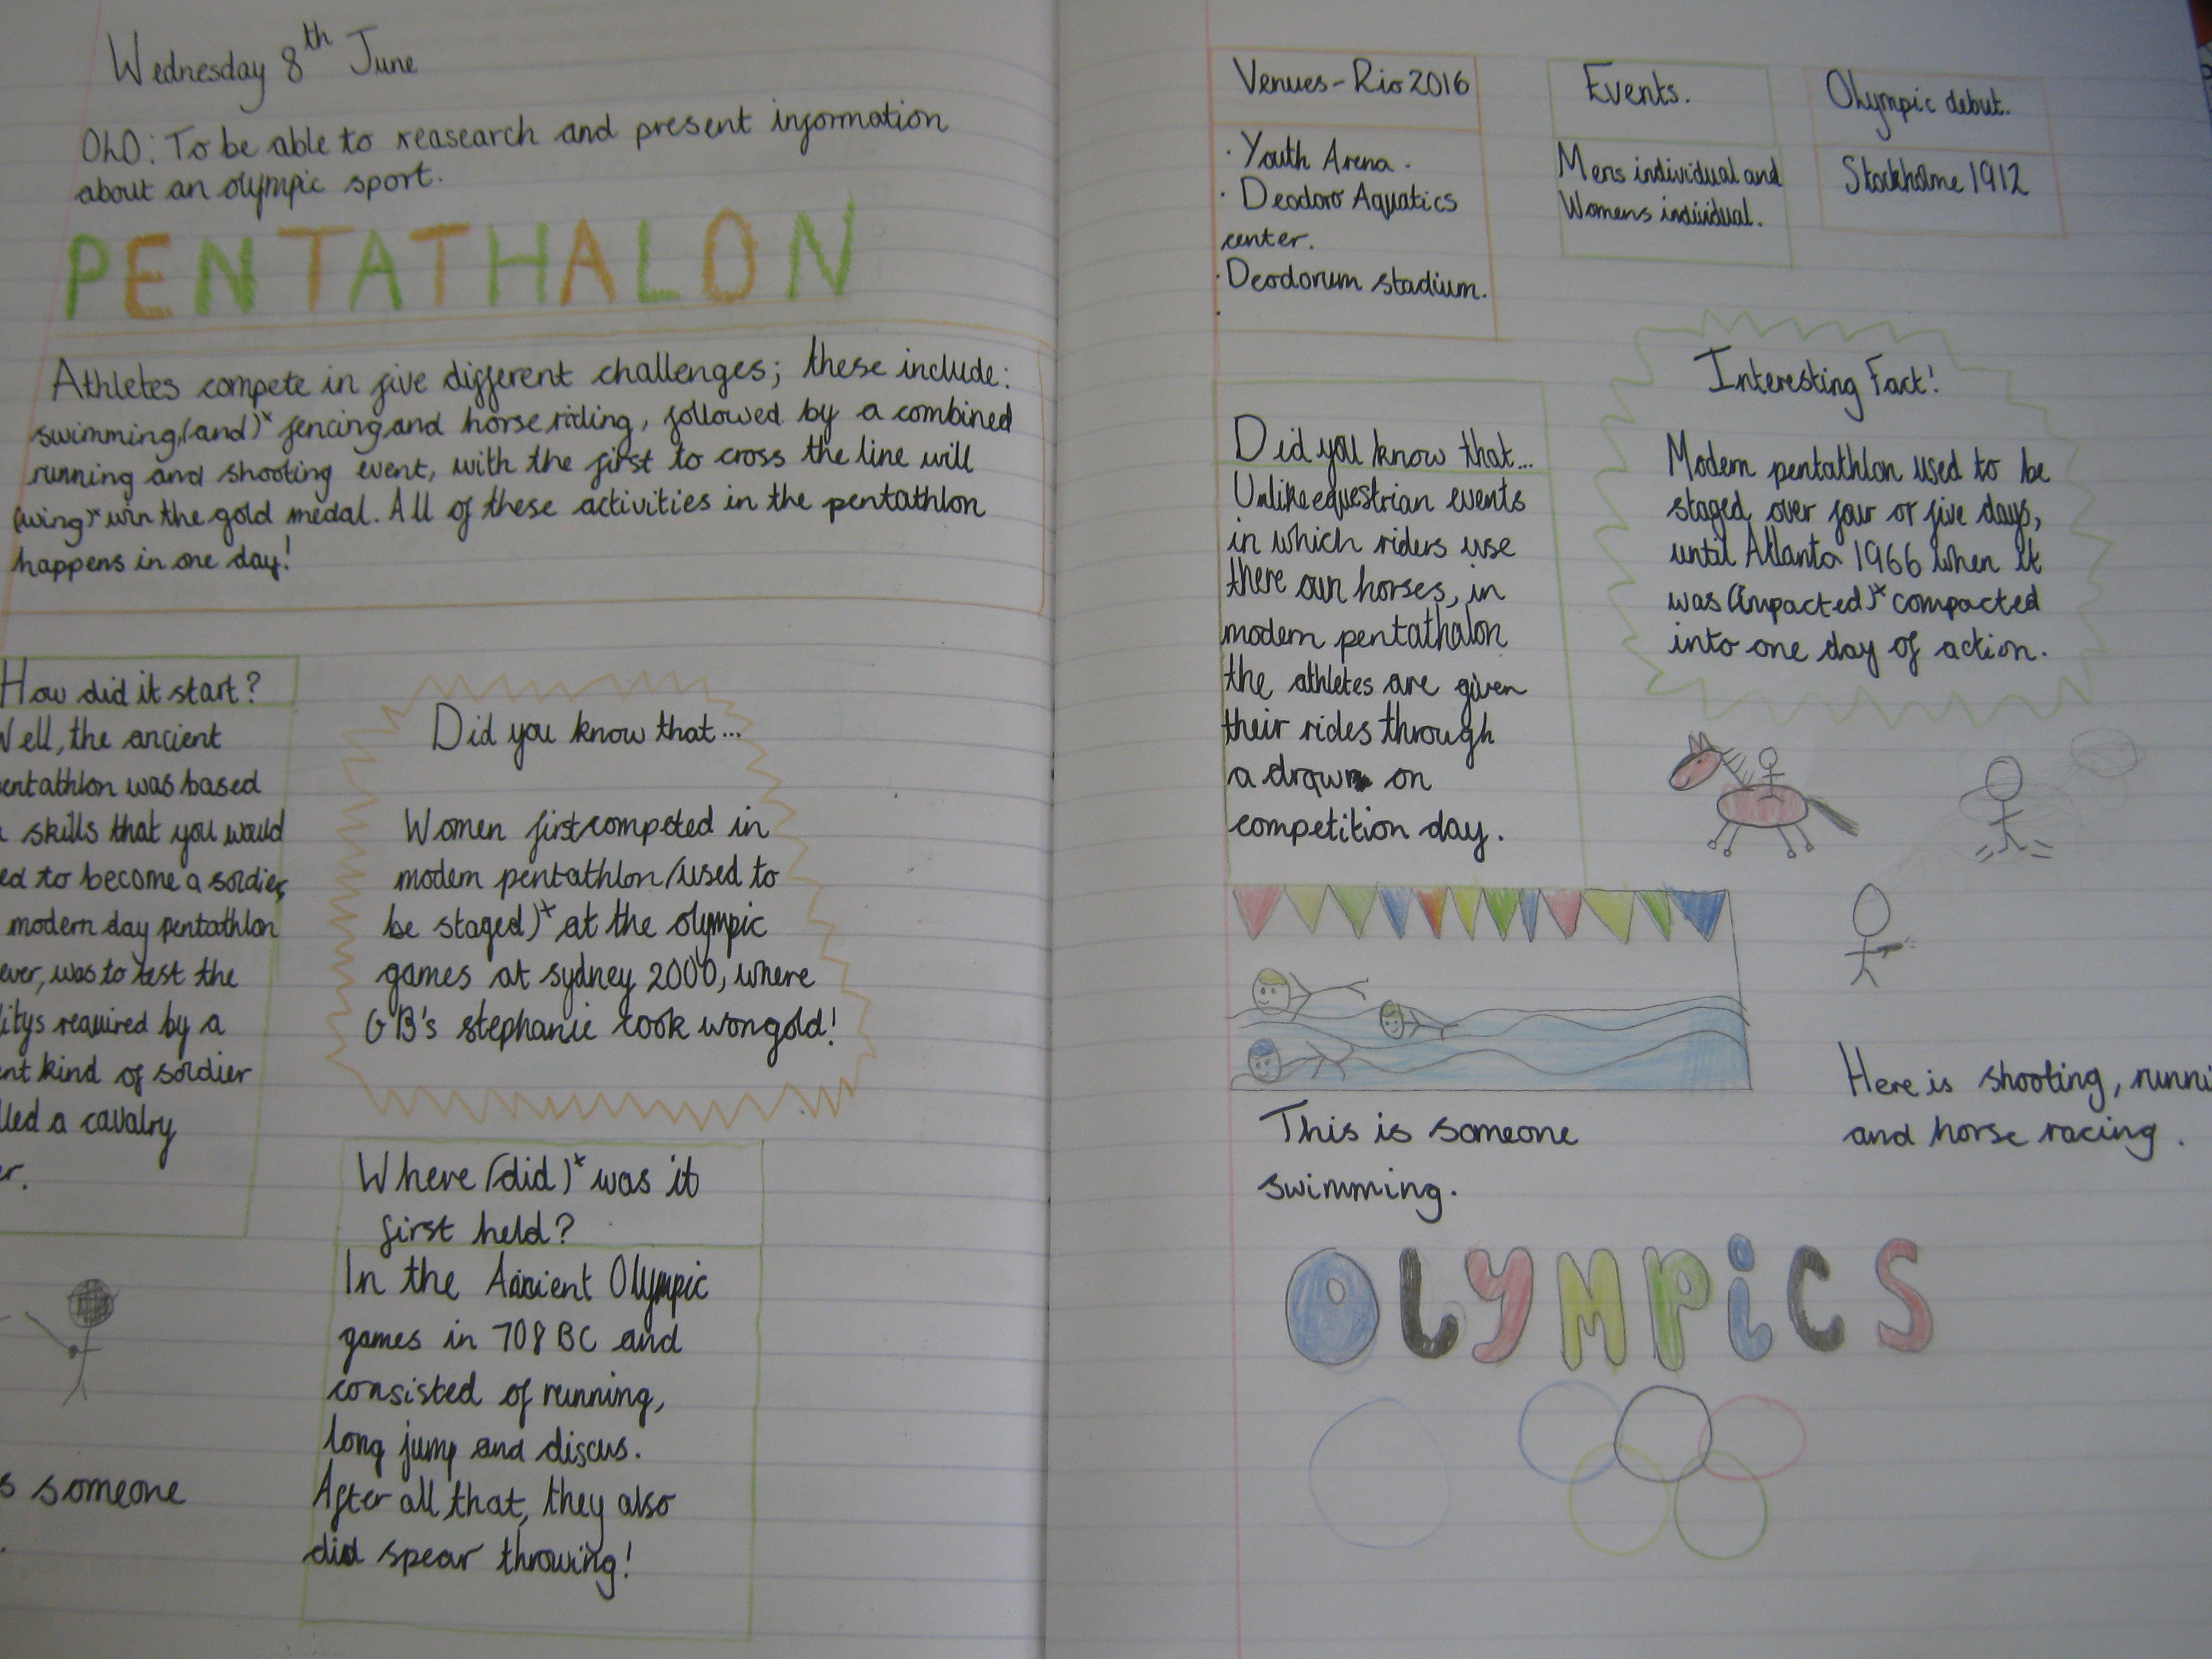 Wednesday 8th June
OLO: To be able to reasearch and present information
about an olympic sport.
PENTATHALON
Athletes compete in five different challenges; these include:
swimming, (and)* fencing and horse riding, followed by a combined
running and shooting event, with the first to cross the line will
(wing)* win the gold medal. All of these activities in the pentathlon
happens in one day!
How did it start?
Well, the ancient
pentathlon was based
skills that you would
to become a soldier,
modern day pentathlon
ever, was to test the
litys required by a
kind of soldier
lled a cavalry
er.
Did you know that...
Women first competed in
modern pentathlon (used to
be staged)* at the olympic
games at sydney 2000, where
GB's stephanie cook won gold!
Where (did)* was it
first held?
In the Ancient Olympic
games in 708 BC and
consisted of running,
long jump and discus.
After all that, they also
did spear throwing!
s someone
Venues - Rio 2016
· Youth Arena.
· Deodoro Aquatics
center.
· Deodorum stadium.
Events.
Mens individual and
Womens individual.
Olympic debut.
Stockholme 1912
Did you know that...
Unlike equestrian events
in which riders use
there own horses, in
modern pentathalon
the athletes are given
their rides through
a drawn on
competition day.
Interesting Fact!
Modern pentathlon used to be
staged over four or five days,
until Atlanta 1966 when it
was (impacted)* compacted
into one day of action.
This is someone
swimming.
Here is shooting, runni
and horse racing.
OLYMPiCS